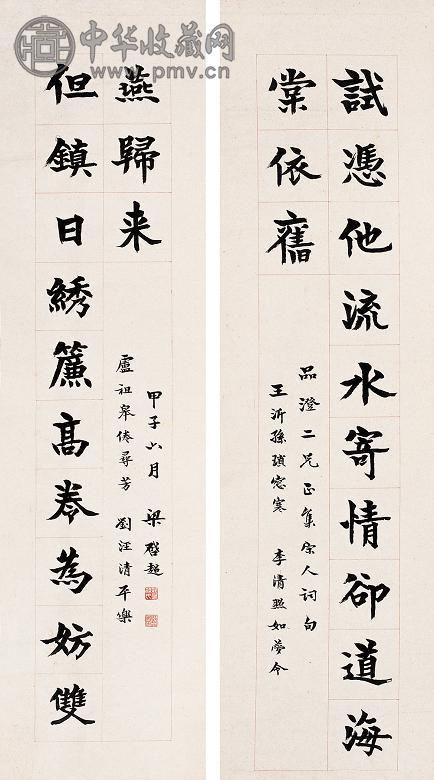 中华收藏网
www.pmv.cn
試憑他流水寄情卻道海
棠依舊
品澄二兄正集宋人詞句
王沂孫瑣窓寒　李清照如夢令
但鎮日綉簾高卷為妨雙
燕歸来
盧祖皋倦尋芳　劉汪清平樂
甲子六月　梁啓超